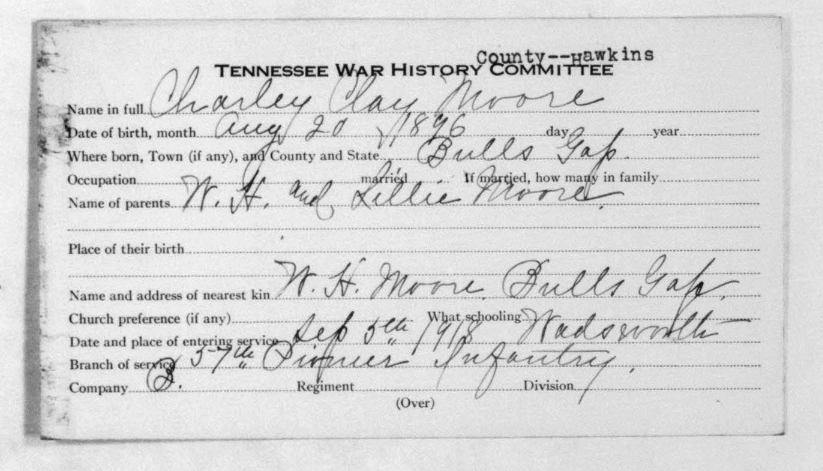 County--Hawkins
TENNESSEE WAR HISTORY COMMITTEE
Name in full Charley Clay Moore
Date of birth, month Aug 20, 1896 day year
Where born, Town (if any), and County and State Bulls Gap.
Occupation married If married, how many in family
Name of parents W. H. and Lillie Moore.
Place of their birth
Name and address of nearest kin W. H. Moore. Bulls Gap.
Church preference (if any) What schooling Wadsworth
Date and place of entering service Sep 5th 1918
Branch of service 57th Pioneer Infantry.
Company B. Regiment Division
(Over)